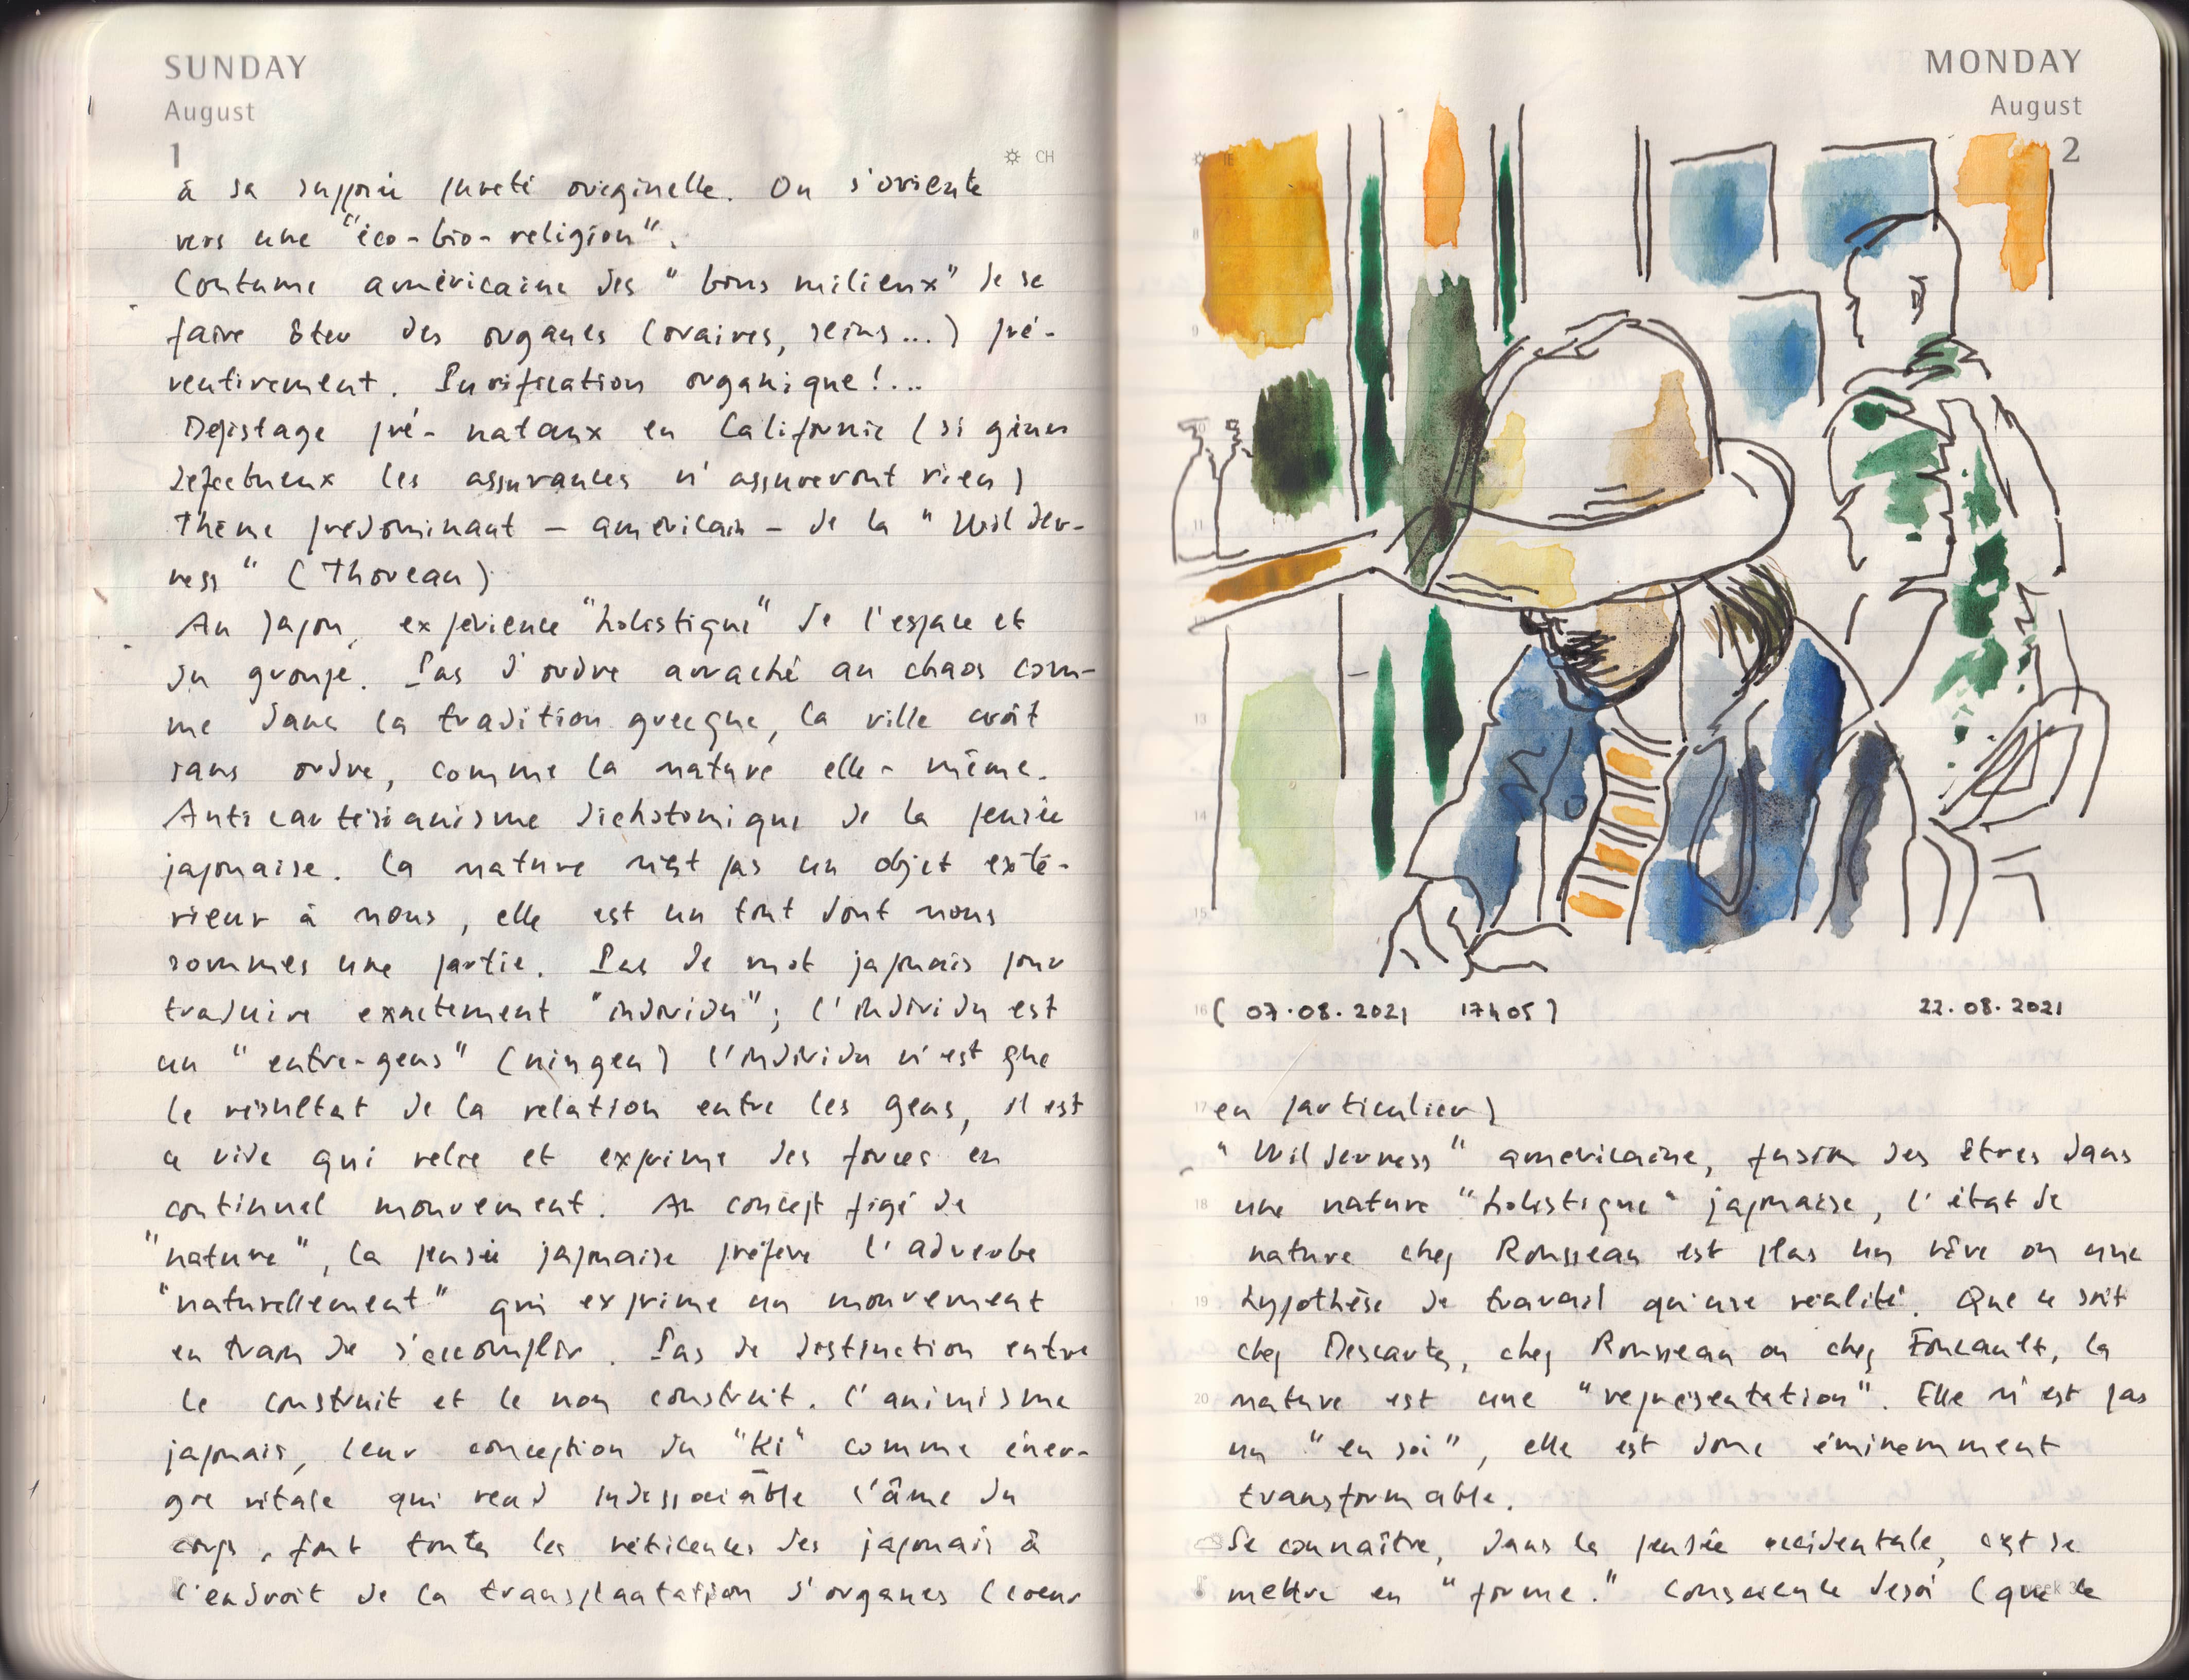 SUNDAY
August
1
CH
à sa supposée pureté originelle. On s'oriente
vers une "éco-bio-religion".
Coutume américaine des "bons milieux" de se
faire ôter des organes (ovaires, seins...) pré-
ventivement. Purification organique!...
Dépistage pré-nataux en Californie (si gènes
défectueux les assurances n'assureront rien)
Thème prédominant – américain – de la "Wilder-
ness" (Thoreau)
Au Japon, expérience "holistique" de l'espace et
du groupe. Pas d'ordre arraché au chaos com-
me dans la tradition grecque, la ville croît
sans ordre, comme la nature elle-même.
Anticartésianisme dichotomique de la pensée
japonaise. La nature n'est pas un objet exté-
rieur à nous, elle est un tout dont nous
sommes une partie. Pas de mot japonais pour
traduire exactement "individu"; l'individu est
un "entre-gens" (ningen) l'individu n'est que
le résultat de la relation entre les gens, il est
ce vide qui relie et exprime des forces en
continuel mouvement. Au concept figé de
"nature", la pensée japonaise préfère l'adverbe
"naturellement" qui exprime un mouvement
en train de s'accomplir. Pas de distinction entre
le construit et le non construit. L'animisme
japonais, leur conception du "Ki" comme éner-
gie vitale qui rend indissociable l'âme du
corps, font toutes les réticences des japonais à
l'endroit de la transplantation d'organes (coeur
MONDAY
August
2
(07.08.2021 17h05)
22.08.2021
en particulier)
"Wilderness" américaine, fusion des êtres dans
une nature "holistique" japonaise, l'état de
nature chez Rousseau est plus un rêve ou une
hypothèse de travail qu'une réalité. Que ce soit
chez Descartes, chez Rousseau ou chez Foucault, la
nature est une "représentation". Elle n'est pas
un "en soi", elle est donc éminemment
transformable.
Se connaître, dans la pensée occidentale, c'est se
mettre en "forme." Conscience de soi (que le